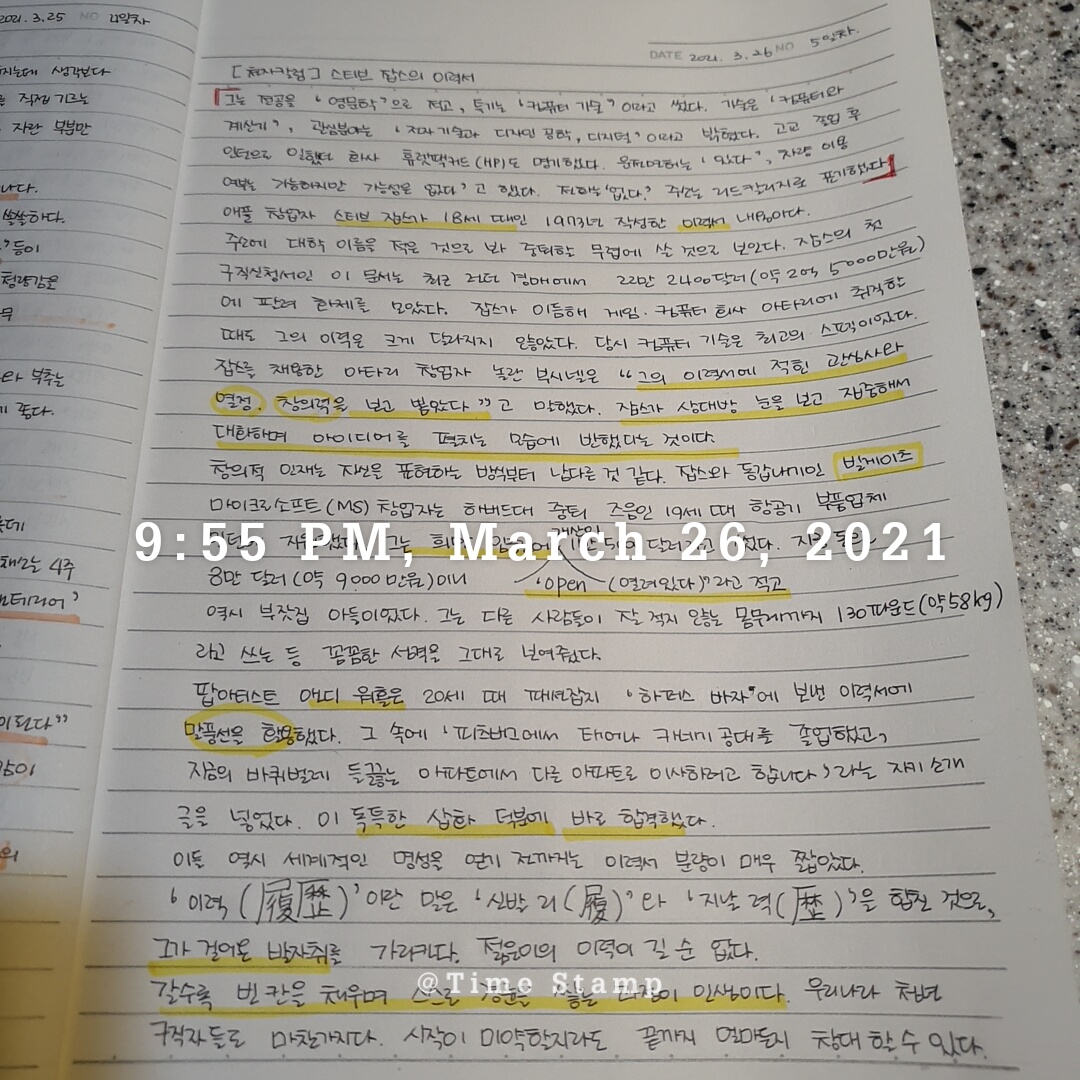 2021. 3.25 NO 4일차
생각보다
직접 기르는
자란 부분만
쓸쓸하다.
등이
청량감은
부추는
좋다.
4주
DATE 2021. 3. 26 NO 5일차.
[천자칼럼] 스티브 잡스의 이력서
그는 전공을 '영문학'으로 적고, 특기는 '컴퓨터 기술'이라고 썼다. 기술은 '컴퓨터와
계산기', 관심분야는 '전자 기술과 디자인 공학, 디지털'이라고 밝혔다. 고교 졸업 후
인턴으로 일했던 회사 휴렛팩커드(HP)도 명기했다. 운전면허는 '있다', 차량 이용
여부는 '가능하지만 가능성은 없다'고 했다. 전화는 '없다' 주소는 리드칼리지로 표기했다
애플 창업자 스티브 잡스가 18세 때인 1973년 작성한 이력서 내용이다.
주소에 대학 이름을 적은 것으로 봐 중퇴할 무렵에 쓴 것으로 보인다. 잡스의 첫
구직신청서인 이 문서는 최근 런던 경매에서 22만 2400달러(약 2억 5000만원)
에 팔려 화제를 모았다. 잡스가 이듬해 게임·컴퓨터 회사 아타리에 취직할
때도 그의 이력은 크게 달라지지 않았다. 당시 컴퓨터 기술은 최고의 스펙이었다.
잡스를 채용한 아타리 창업자 놀란 부시넬은 "그의 이력서에 적힌 관심사와
열정, 창의력을 보고 뽑았다"고 말했다. 잡스가 상대방 눈을 보고 집중해서
대화하며 아이디어를 펼치는 모습에 반했다는 것이다.
창의적 인재는 자신을 표현하는 방식부터 남다른 것 같다. 잡스와 동갑내기인 빌게이츠
마이크로소프트(MS) 창업자는 하버드대 중퇴 즈음인 19세 때 항공기 부품업체
8만 달러(약 9000만원)이니 'open (열려있다)"라고 적고
역시 부잣집 아들이었다. 그는 다른 사람들이 잘 적지 않는 몸무게까지 130파운드(약58kg)
라고 쓰는 등 꼼꼼한 성격을 그대로 보여줬다.
팝아티스트 앤디 워홀은 20세 때 패션잡지 '하퍼스 바자'에 보낸 이력서에
말풍선을 활용했다. 그 속에 '피츠버그에서 태어나 카네기 공대를 졸업했고,
지금의 바퀴벌레 들끓는 아파트에서 다른 아파트로 이사하려고 합니다'라는 자기소개
글을 넣었다. 이 독특한 삽화 덕분에 바로 합격했다.
이들 역시 세계적인 명성을 얻기 전까지는 이력서 분량이 매우 짧았다.
'이력(履歷)'이란 말은 '신발 리(履)'와 '지날 력(歷)'을 합친 것으로,
그가 걸어온 발자취를 가리킨다. 젊은이의 이력이 길 순 없다.
갈수록 빈 칸을 채우며 스스로 인생이다. 우리나라 청년
구직자들도 마찬가지다. 시작이 미약할지라도 끝까지 얼마든지 창대할 수 있다.
9:55 PM, March 26, 2021
@Time Stamp